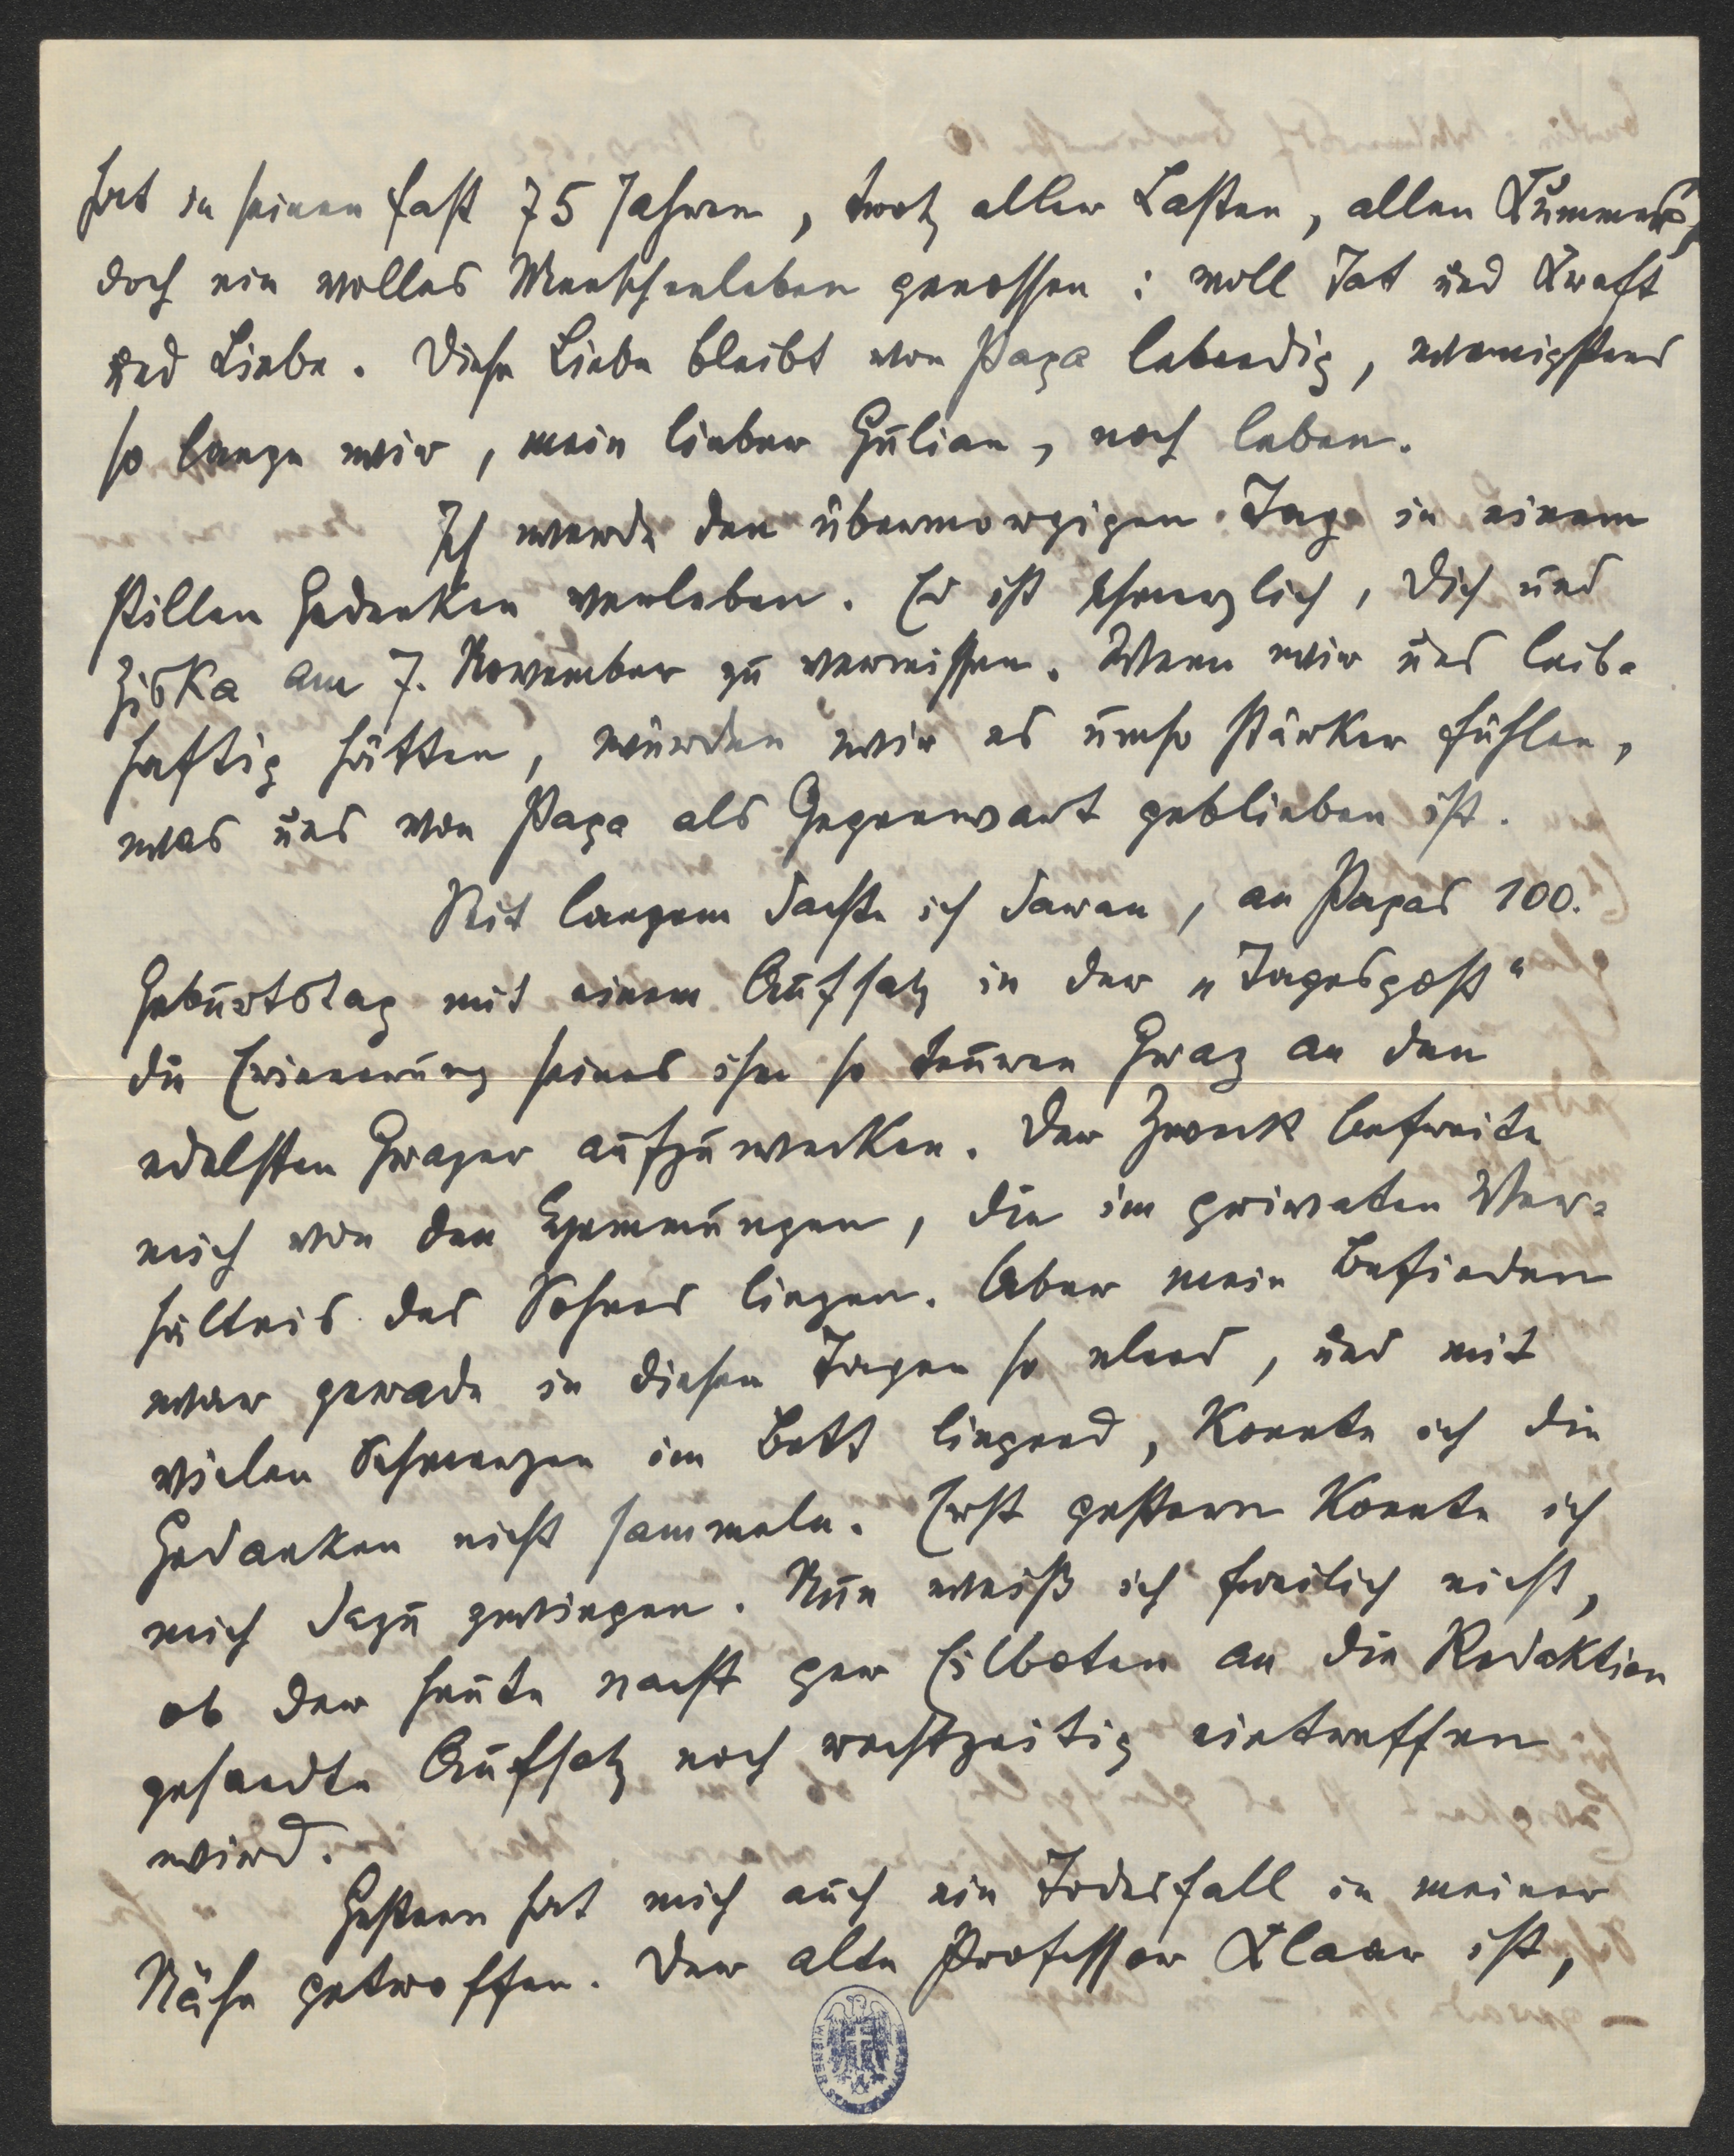 hat in seinen fast 75 Jahren, trotz aller Lasten, allen Kummers,
doch ein volles Menschenleben genossen: voll Tat und Kraft
und Liebe. Diese Liebe bleibt von Papa lebendig, wenigstens
so lange wir, mein lieber Julian, noch leben.
Ich werde den übermorgigen Tag in einem
stillen Gedenken verleben. Es ist schmerzlich, Dich und
Ziska am 7. November zu vermissen. Wenn wir uns leib-
haftig hätten, würden wir es umso stärker fühlen,
was uns von Papa als Gegenwart geblieben ist.
Seit langem dachte ich daran, an Papas 100.
Geburtstag mit einem Aufsatz in der „Tagespost“
die Erinnerung seines ihm so teuren Graz an den
edelsten Grazer aufzuwecken. Der Zweck befreite
mich von den Hemmungen, die im privaten Ver-
hältnis des Sohnes liegen. Aber mein Befinden
war gerade in diesen Tagen so elend, und mit
vielen Schmerzen im Bett liegend, konnte ich die
Gedanken nicht sammeln. Erst gestern konnte ich
mich dazu zwingen. Nun weiß ich freilich nicht,
ob der heute nacht per Eilboten an die Redaktion
gesandte Aufsatz noch rechtzeitig eintreffen
wird.
Gestern hat mich auch ein Todesfall in meiner
Nähe getroffen. Der alte Professor Klaar ist,